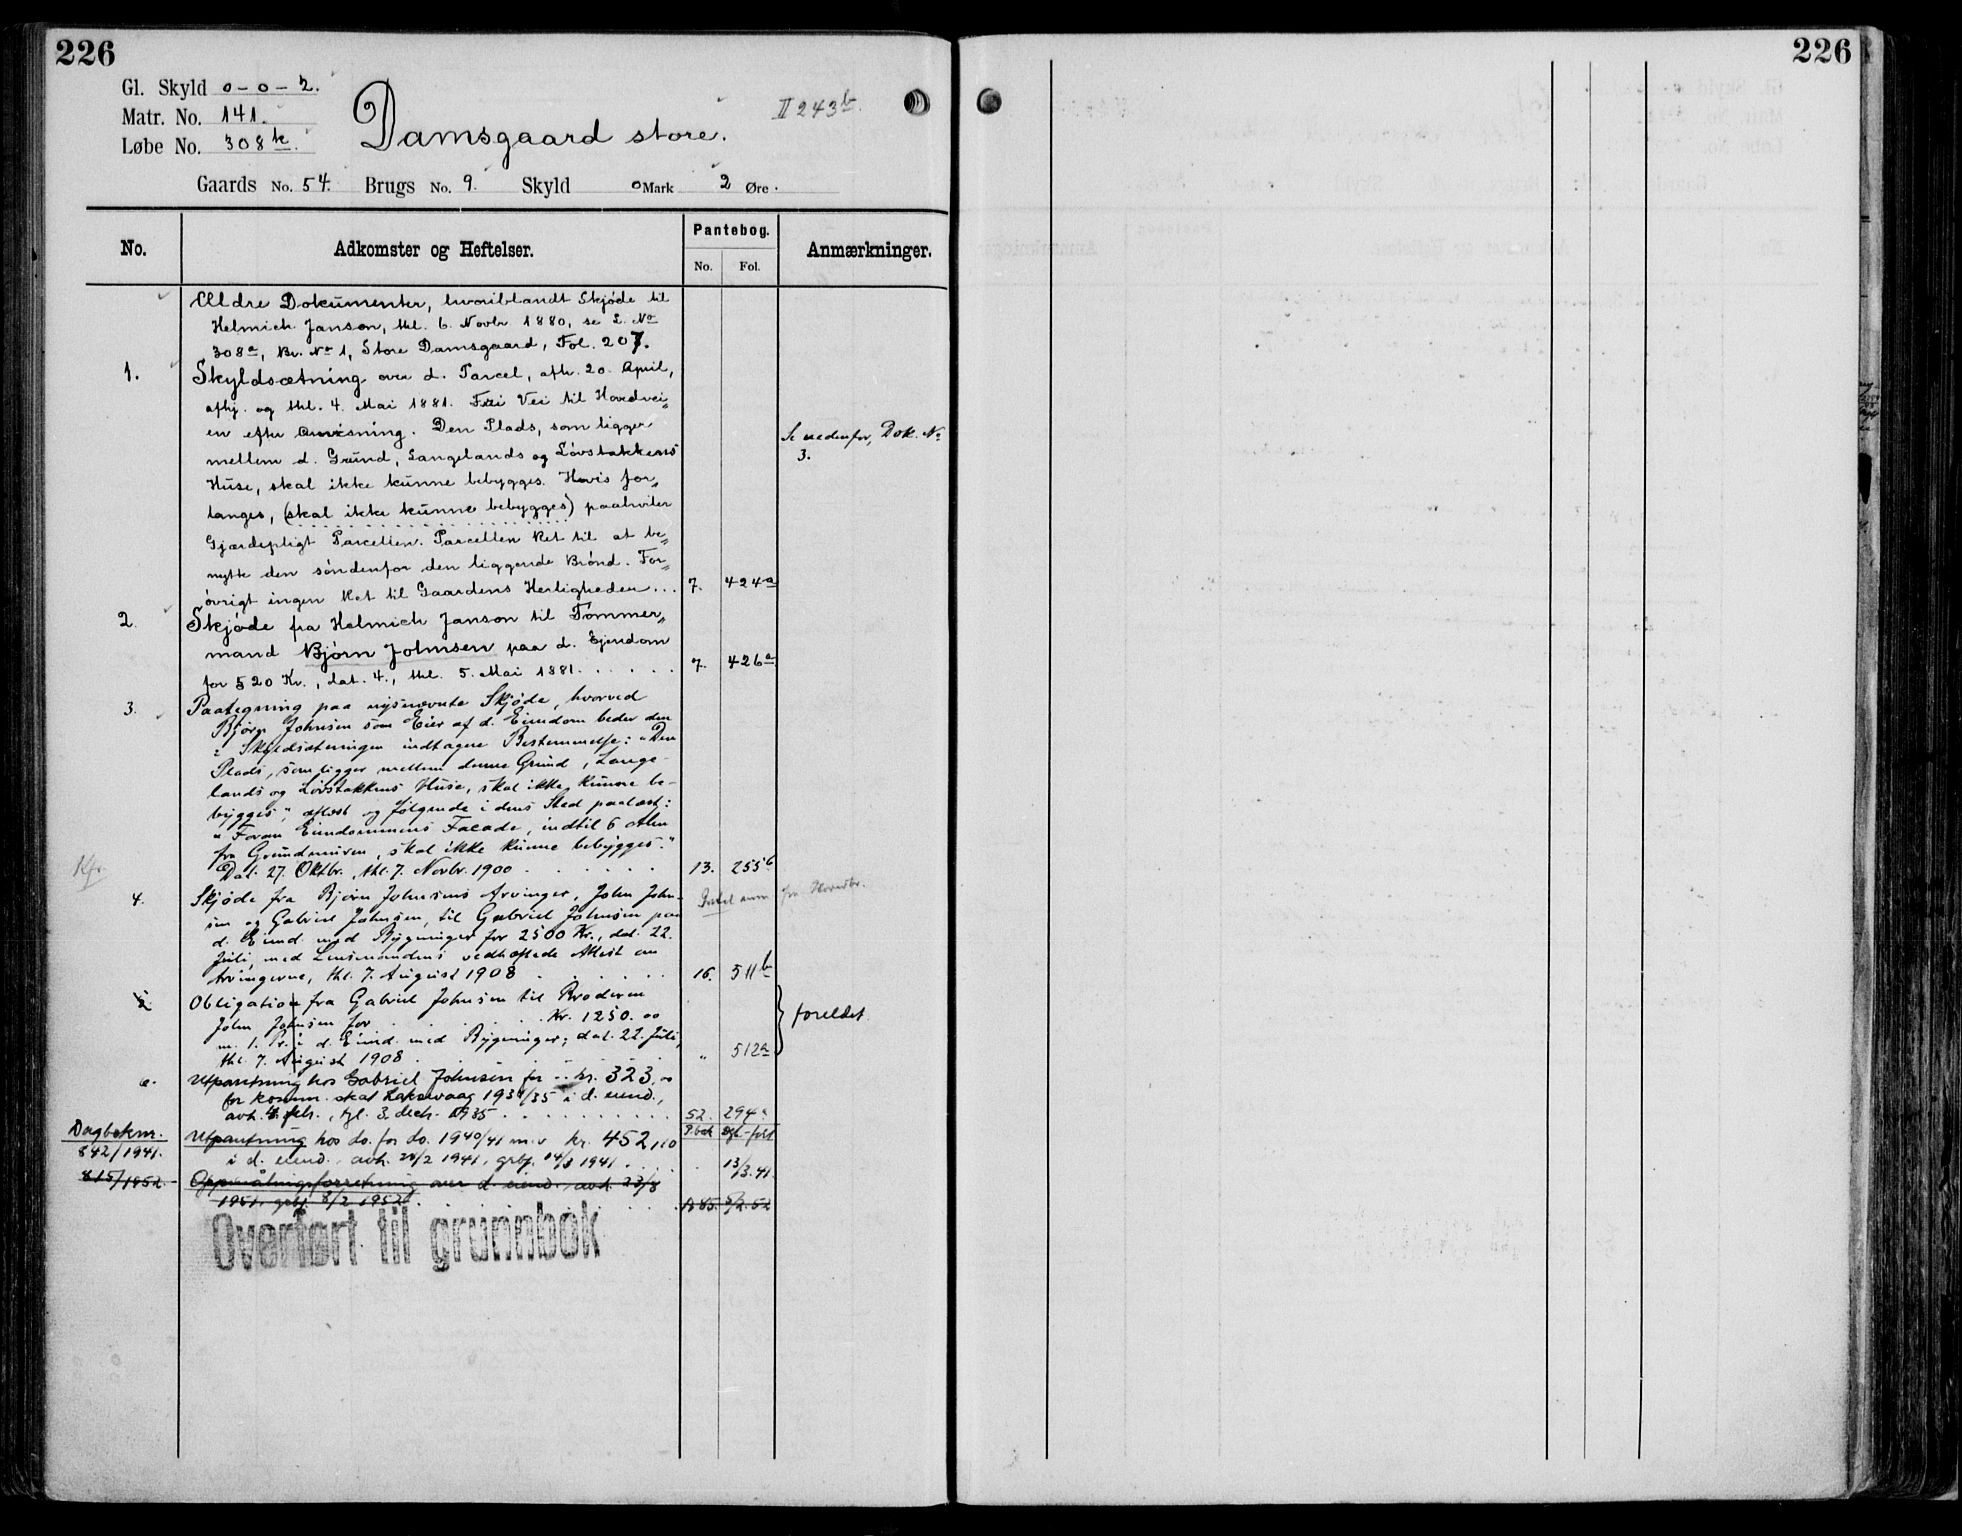 226
226
Gl. Skyld 0-0-2.
Matr. No. 141.
Løbe No. 308k.
Damsgaard store.
II 243b.
Gaards No. 54. Brugs No. 9. Skyld 0 Mark 2 Øre.
No. Adkomster og Heftelser. Pantebog. Anmærkninger.
No. Fol.
Ældre Dokumenter, hvoriblandt Skjøde til
Helmich Janson, thl. 6. Novbr 1880, se L. No
308a, Br. No 1, Store Damsgaard, Fol. 207.
1. Skyldsætning over d. Parcel, afh. 20. April,
afhj. og thl. 4. Mai 1881. Fri Vei til Hovedvei„
en efter Anvisning. Den Plads, som ligger
mellem d. Grund, Langelands og Løvstakkens
Se nedenfor, Dok. No
3.
Huse, skal ikke kunne bebygges. Hvis for„
langes, (skal ikke kunne bebygges) paahviler
Gjærdepligt Parcellen. Parcellen Ret til at be„
nytte den søndenfor den liggende Brønd. For„
øvrigt ingen Ret til Gaardens Herligheder... 7. 424a
2. Skjøde fra Helmich Janson til Tømmer„
mand Bjørn Johnsen paa d. Ejendom
for 520 Kr., dat. 4., thl. 5. Mai 1881. . . . . . 7. 426a
3. Paategning paa nysnævnte Skjøde, hvorved
Bjørn Johnsen som Eier af d. Eiendom beder den
i Skyldsætningen indtagne Bestemmelse: "Den
Plads, som ligger mellem denne Grund, Lange-
lands og Løvstakkens Huse, skal ikke kunne be-
bygges", aflæst og følgende i dens Sted paalæst:
"Foran Eiendommens Facade, indtil 6 Alen
fra Grundmuren, skal ikke kunne bebygges."
Dat. 27. Oktbr., thl. 7. Novbr. 1900 . . . . . . 13. 255b
4. Skjøde fra Bjørn Johnsens Arvinger, John John-
sen og Gabriel Johnsen, til Gabriel Johnsen paa
d. Eiend. med Bygninger for 2500 Kr., dat. 22.
Juli, med Lensmandens vedhæftede Attest om
Arvingerne, thl. 7. August 1908 . . . . . . 16. 511b
fra Hovedbr.
5. Obligation fra Gabriel Johnsen til Broderen
John Johnsen for . . . . . Kr. 1250.00
m. 1. Pr. i d. Eiend. med Bygninger; dat. 22. Juli,
thl. 7. August 1908 . . . . . . „ 512a
foreldet.
6. Utpantning hos Gabriel Johnsen for -.. kr. 323,00
for komm. skat Laksevaag 1934/35 i d. eiend.,
avh. 4. febr., tgl. 3. decb. 1935 . . . . . . . . . . 52. 294a
Dagboknr.
842/1941. Utpantning hos do. for do. 1940/41 m.v kr. 452,10 P.bok Dgb-ført
i d. eiend., avh. 28/2 1941, grbf. 14/3 1941 . . . . . 13/3.41.
815/1952. Oppmålingsforretning over d. eiend., avh. 23/8
1951, grbf. 8/2 1952. . . . . . . . . 8/2.52
Overført til grunnbok